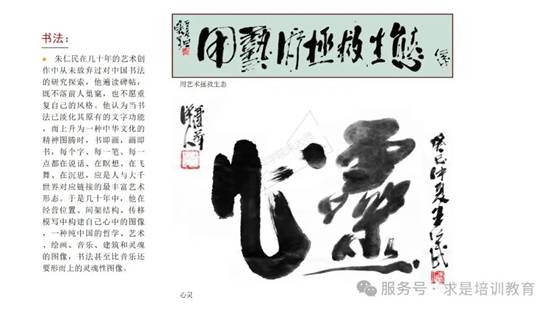 书法：
朱仁民在几十年的艺术创
作中从未放弃过对中国书法
的研究探索，他遍读碑帖，
既不落前人窠窠，也不愿重
复自己的风格。他认为当书
法已淡化其原有的文字功能
，而上升为一种中华文化的
精神图腾时，书即画，画即
书，每个字、每一笔、每一
点都在说话、在瞑想、在飞
舞、在沉思，应是人与大千
世界对应链接的最丰富艺术
形态。于是几十年中，他在
经营位置、间架结构、传移
模写中构建自己心中的图像
，一种纯中国的哲学、艺术
、绘画、音乐、建筑和灵魂
的图像，书法甚至比音乐还
要形而上的灵魂性图像。
用藝術拯救生態
用艺术拯救生态
心靈
心灵
服务号·求是培训教育